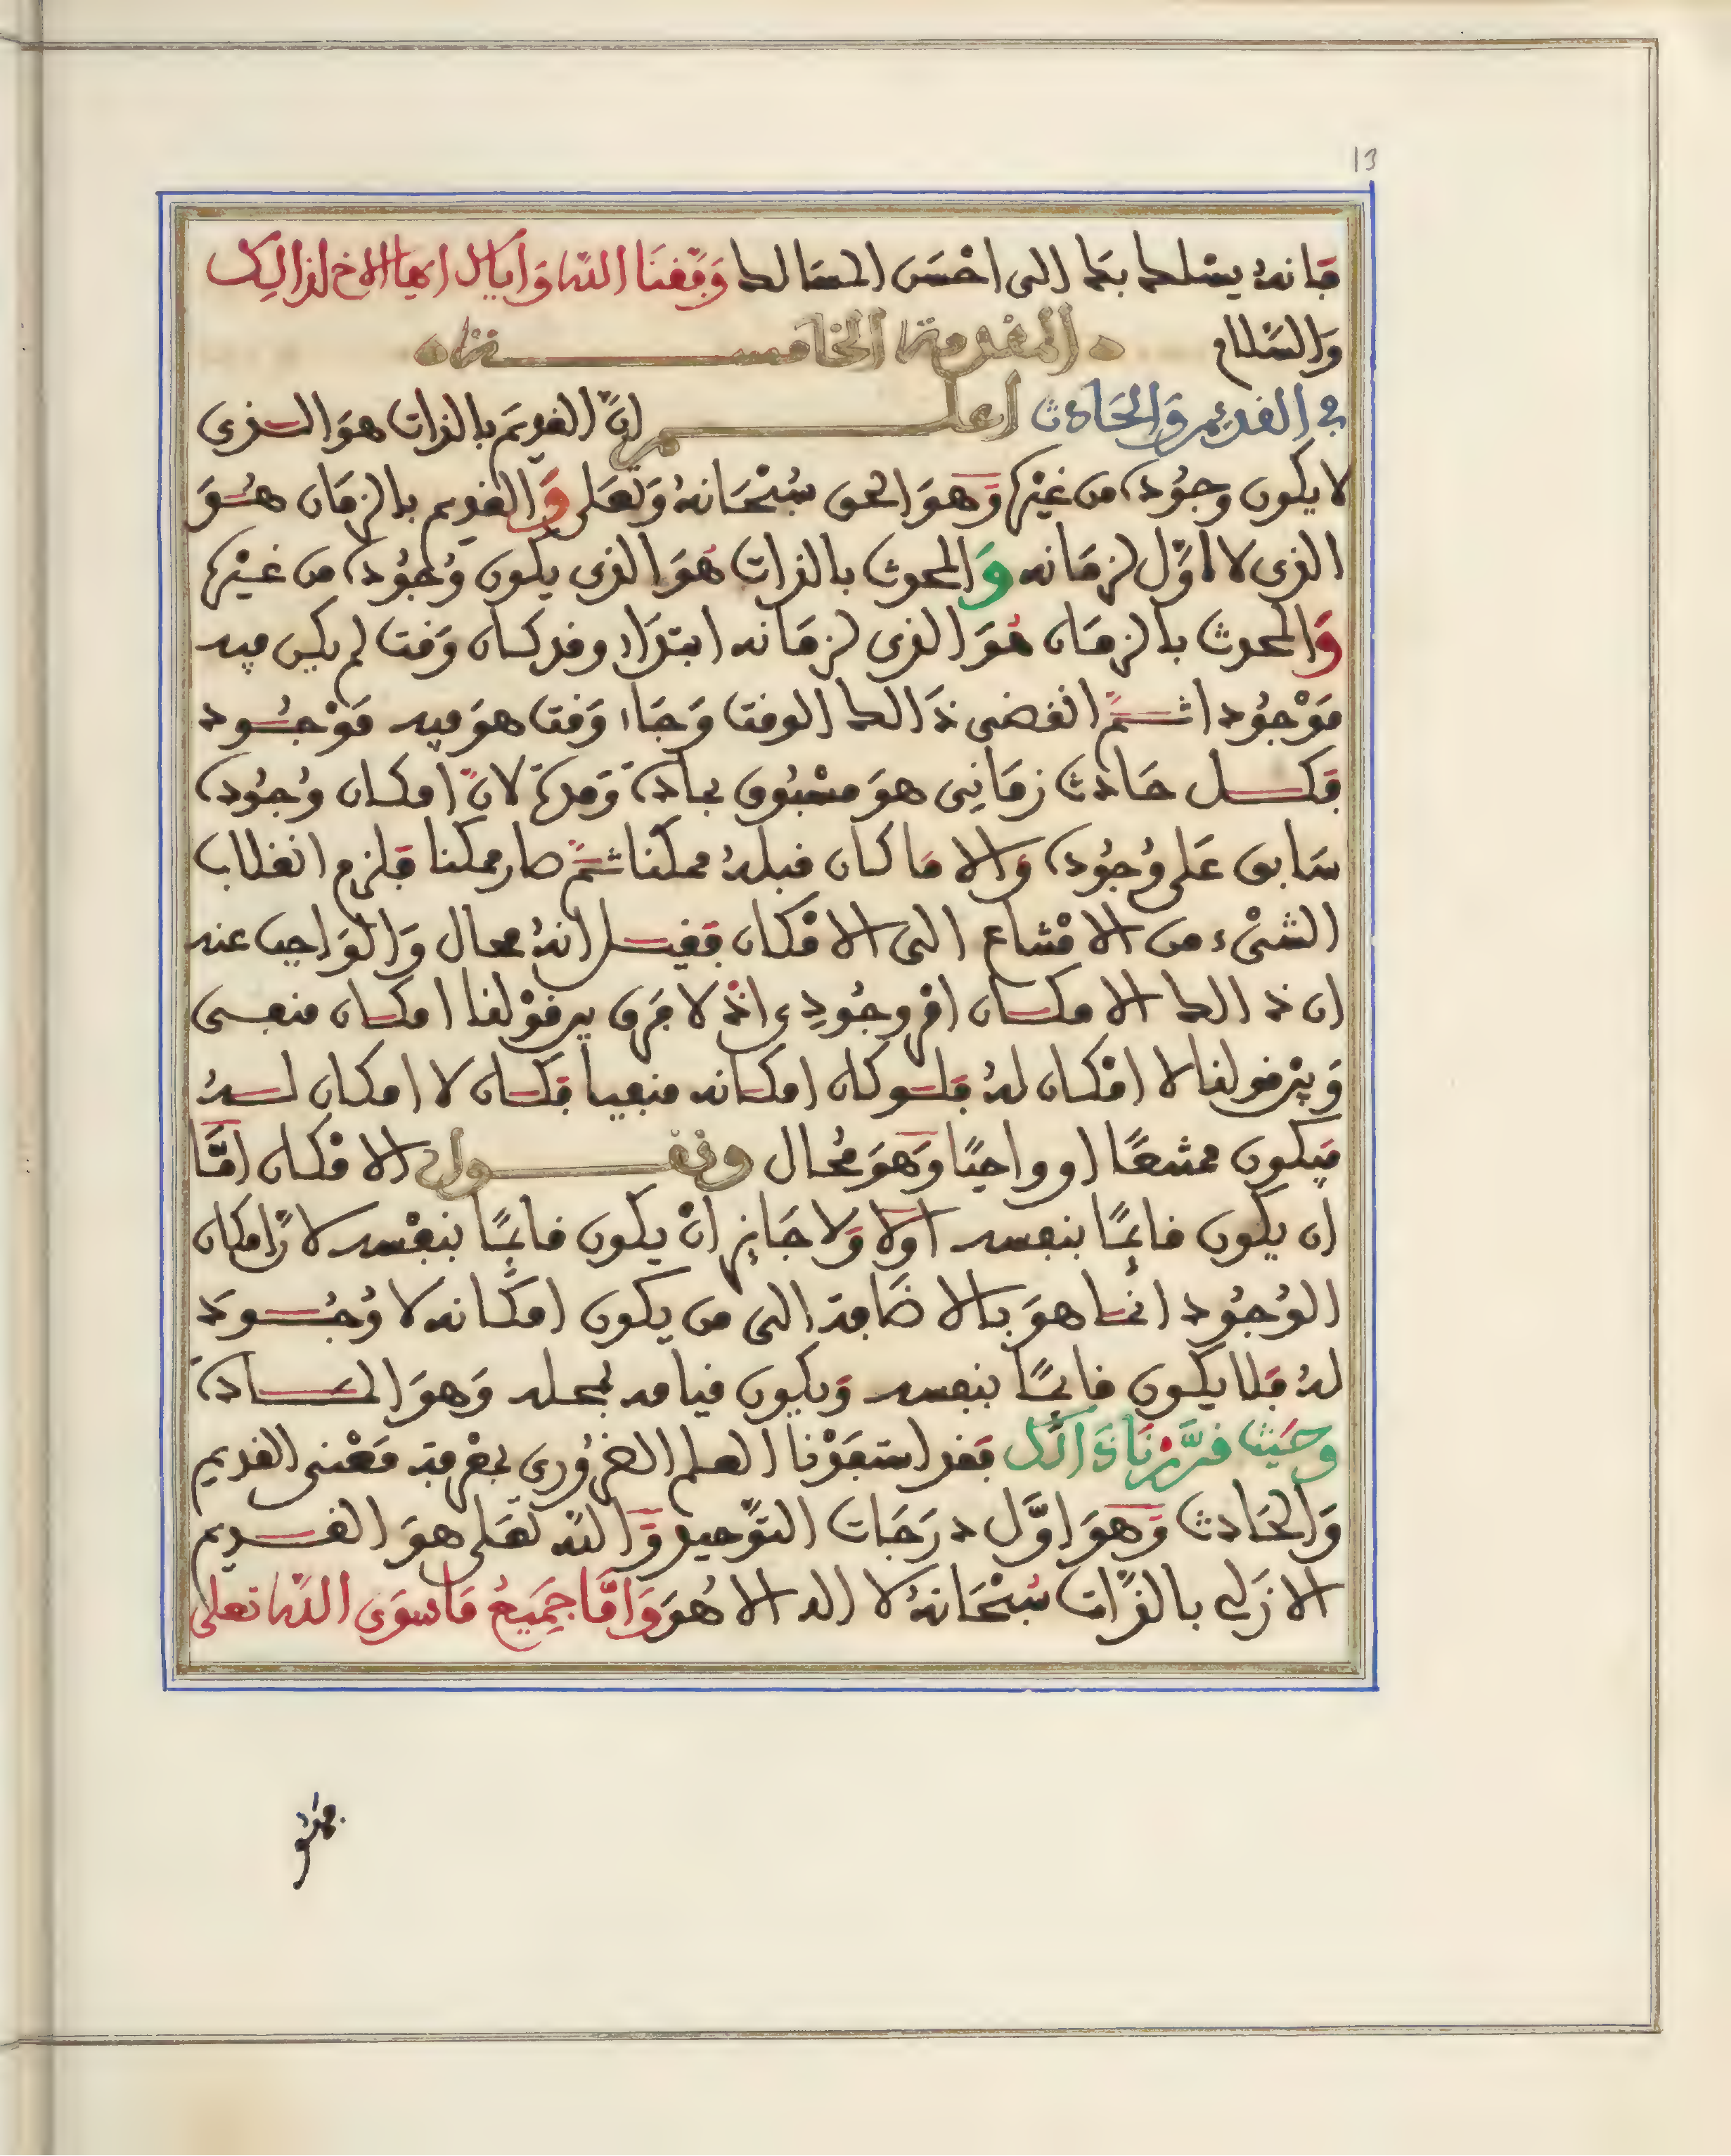 13
فانه يسلك بك الى احسن المسالك وفقنا الله واياك ايها الاخ لذالك
والسلام المقدمة الخامسة
في القديم والحادث اعلم ان القديم بالذات هو الذي
لا يكون وجوده من غيره وهو الحق سبحانه وتعلى والقديم بالزمان هو
الذي لا اول لزمانه والمحدث بالذات هو الذي يكون وجوده من غيره
والمحدث بالزمان هو الذي لزمانه ابتداء وقد كان وقت لم يكن فيه
موجودا ثم انقضى ذالك الوقت وجاء وقت هو فيه موجود
فكل حادث زماني هو مسبوق بمادة ومدة لان امكان وجوده
سابق على وجوده والا ما كان قبله ممكنا ثم صار ممكنا فلزم انقلاب
الشيء من الامتناع الى الامكان فقيل انه محال والواجب عنه
ان ذالك الامكان امر وجودي اذ لا فرق بين قولنا امكان منفي
وبين قولنا لا امكان له فلو كان امكانه منفيا فكان لا امكان له
فيكون ممتنعا او واجبا وهو محال ونقول الامكان اما
ان يكون قائما بنفسه اولا ولا جايز ان يكون قائما بنفسه لان امكان
الوجود انما هو بالاضافة الى من يكون امكانه لا وجود
له فلا يكون قائما بنفسه ويكون قيامه بمحله وهو المادة
وحيث قررنا ذالك فقد استفدنا العلم الضروري بمعرفة معنى القديم
والحادث وهو اول درجات التوحيد والله تعلى هو القديم
الازلي بالذات سبحانه لا اله الا هو واما جميع ما سوى الله تعلى
فهو